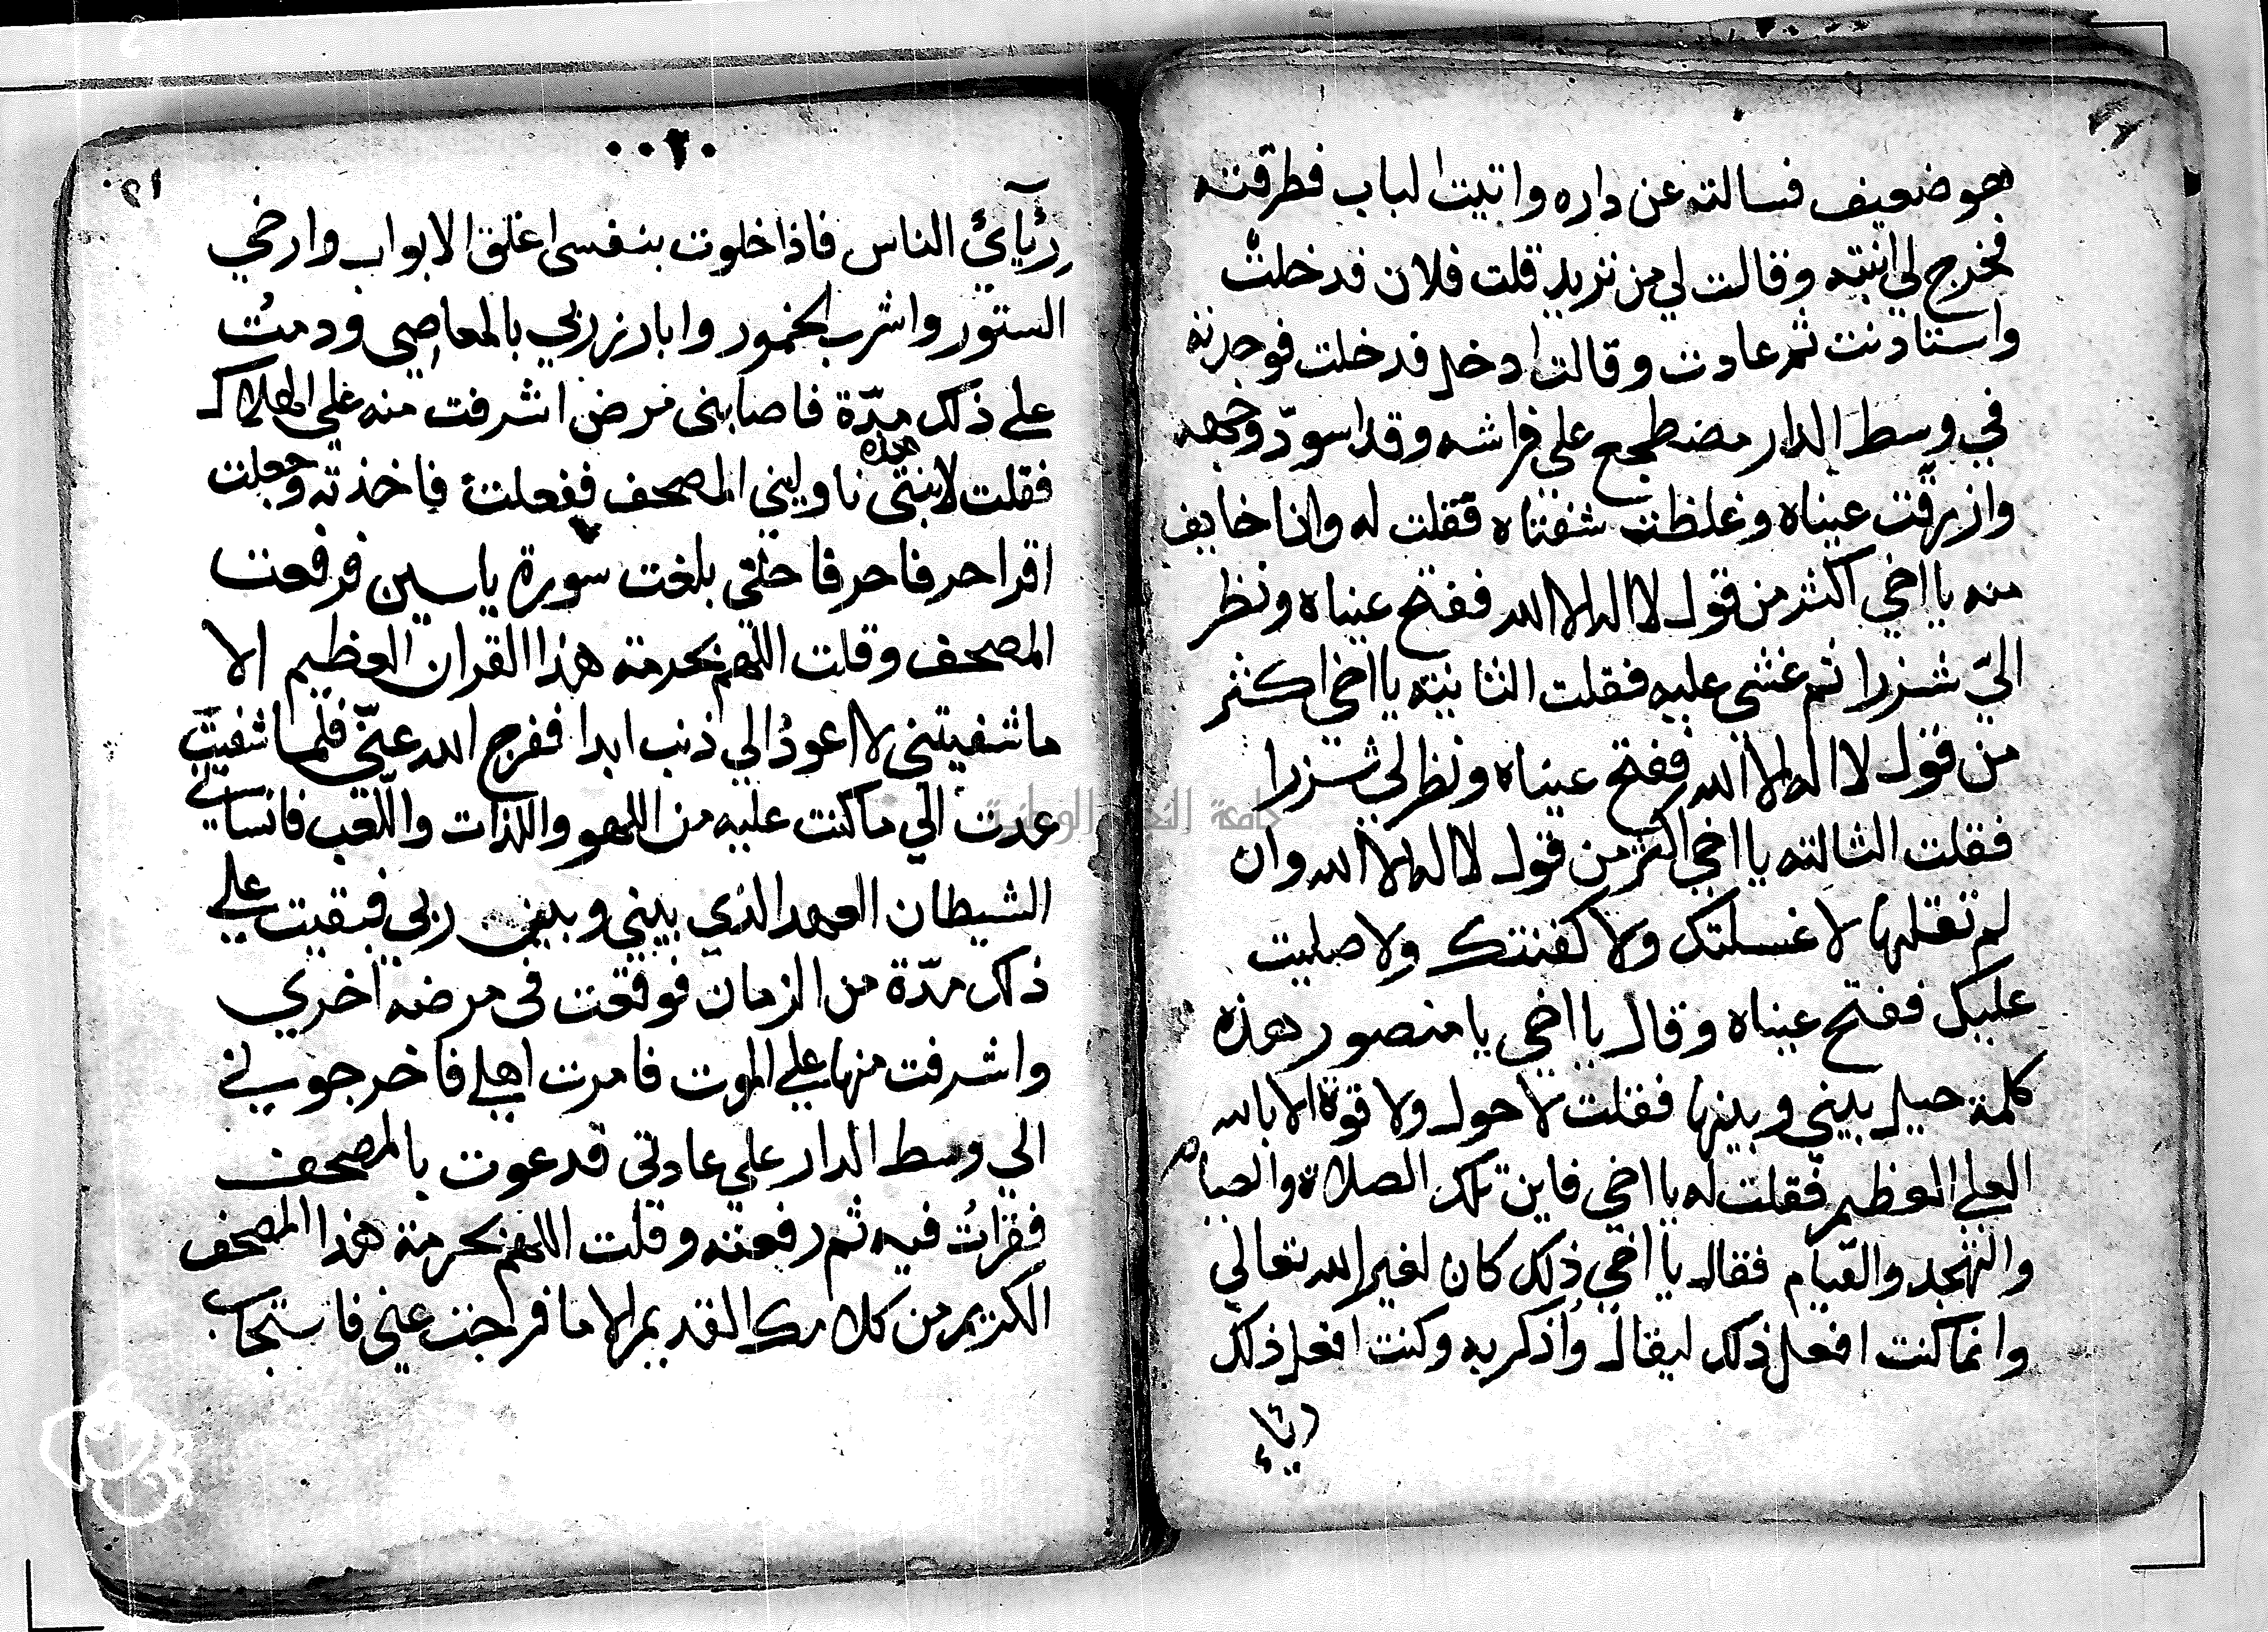 هو ضعيف فسالته عن داره واتيت الباب فطرقته
فخرج لي ابنته وقالت لي من نزيد قلت فلان فدخلت
واستادنت ثم عادت وقالت ادخل فدخلت فوجدته
في وسط الدار مضطجع علي فراشه وقد اسودّ وجهه
وازرقت عيناه وغلظت شفتاه فقلت له وانا خايف
منه يا اخي اكثر من قول لا اله الا الله ففتح عيناه ونظر
اليّ شزرا ثم غشي عليه فقلت الثانيته يا اخي اكثر
من قول لا اله الا الله ففتح عيناه ونظر لي شزرا
فقلت الثالته يا اخي اكثر من قول لا اله الا الله وان
لم تقلها لا غسلتك ولا كفنتك ولا صليت
عليك ففتح عيناه وقال يا اخي يا منصور هذه
كلمة حيل بيني وبينها فقلت لا حول ولا قوة الا بالله
العلي العظيم فقلت له يا اخي فاين تلك الصلاة والصيام
والتهجد والقيام فقال يا اخي ذلك كان لغير الله تعالي
وانما كنت افعل ذلك ليقال وأذكر به وكنت افعل ذلك
رئاء
٢٠
٢١
رئآئ الناس فاذا خلوت بنفسي اغلق الابواب وارخي
الستور واشرب الخمور وابارز ربي بالمعاصي ودمتُ
علي ذلك مدّة فاصابني مرض اشرفت منه علي الهلاك
فقلت لابنتي هذه ناوليني المصحف ففعلت فاخذته وجعلت
اقرا حرفا حرفا حتي بلغت سورة ياسين فرفعت
المصحف وقلت اللهم بحرمة هذا القران العظيم الا
ما شفيتني لا اعودُ الي ذنب ابدا ففرج الله عنّي فلما شفيت
عدت الي ما كنت عليه من اللهو واللذات واللّعب فانساني
الشيطان العهد الذي بيني وبين ربي فبقيت علي
ذلك مدّة من الزمان فوقعت في مرضه اخري
واشرفت منها علي الموت فامرت اهلي فاخرجوني
الي وسط الدار علي عادتي فدعوت بالمصحف
فقرأتُ فيه ثم رفعته وقلت اللهم بحرمة هذا المصحف
الكريم من كلامك القديم الا ما فرجت عني فاستجاب